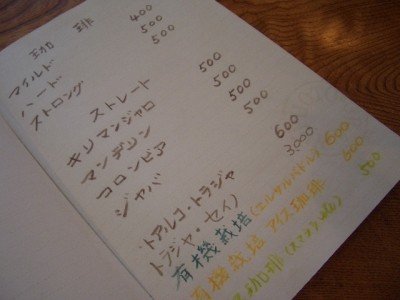 珈琲
マイルド 400
ハード 500
ストロング 500
ストレート
キリマンジャロ 500
マンデリン 500
コロンビア 500
ジャバ 500
トアルコ・トラジャ 600
トラジャ・ 3,000
有機栽培(エルサルバドル) 600
有機栽培 アイス珈琲 600
珈琲 500